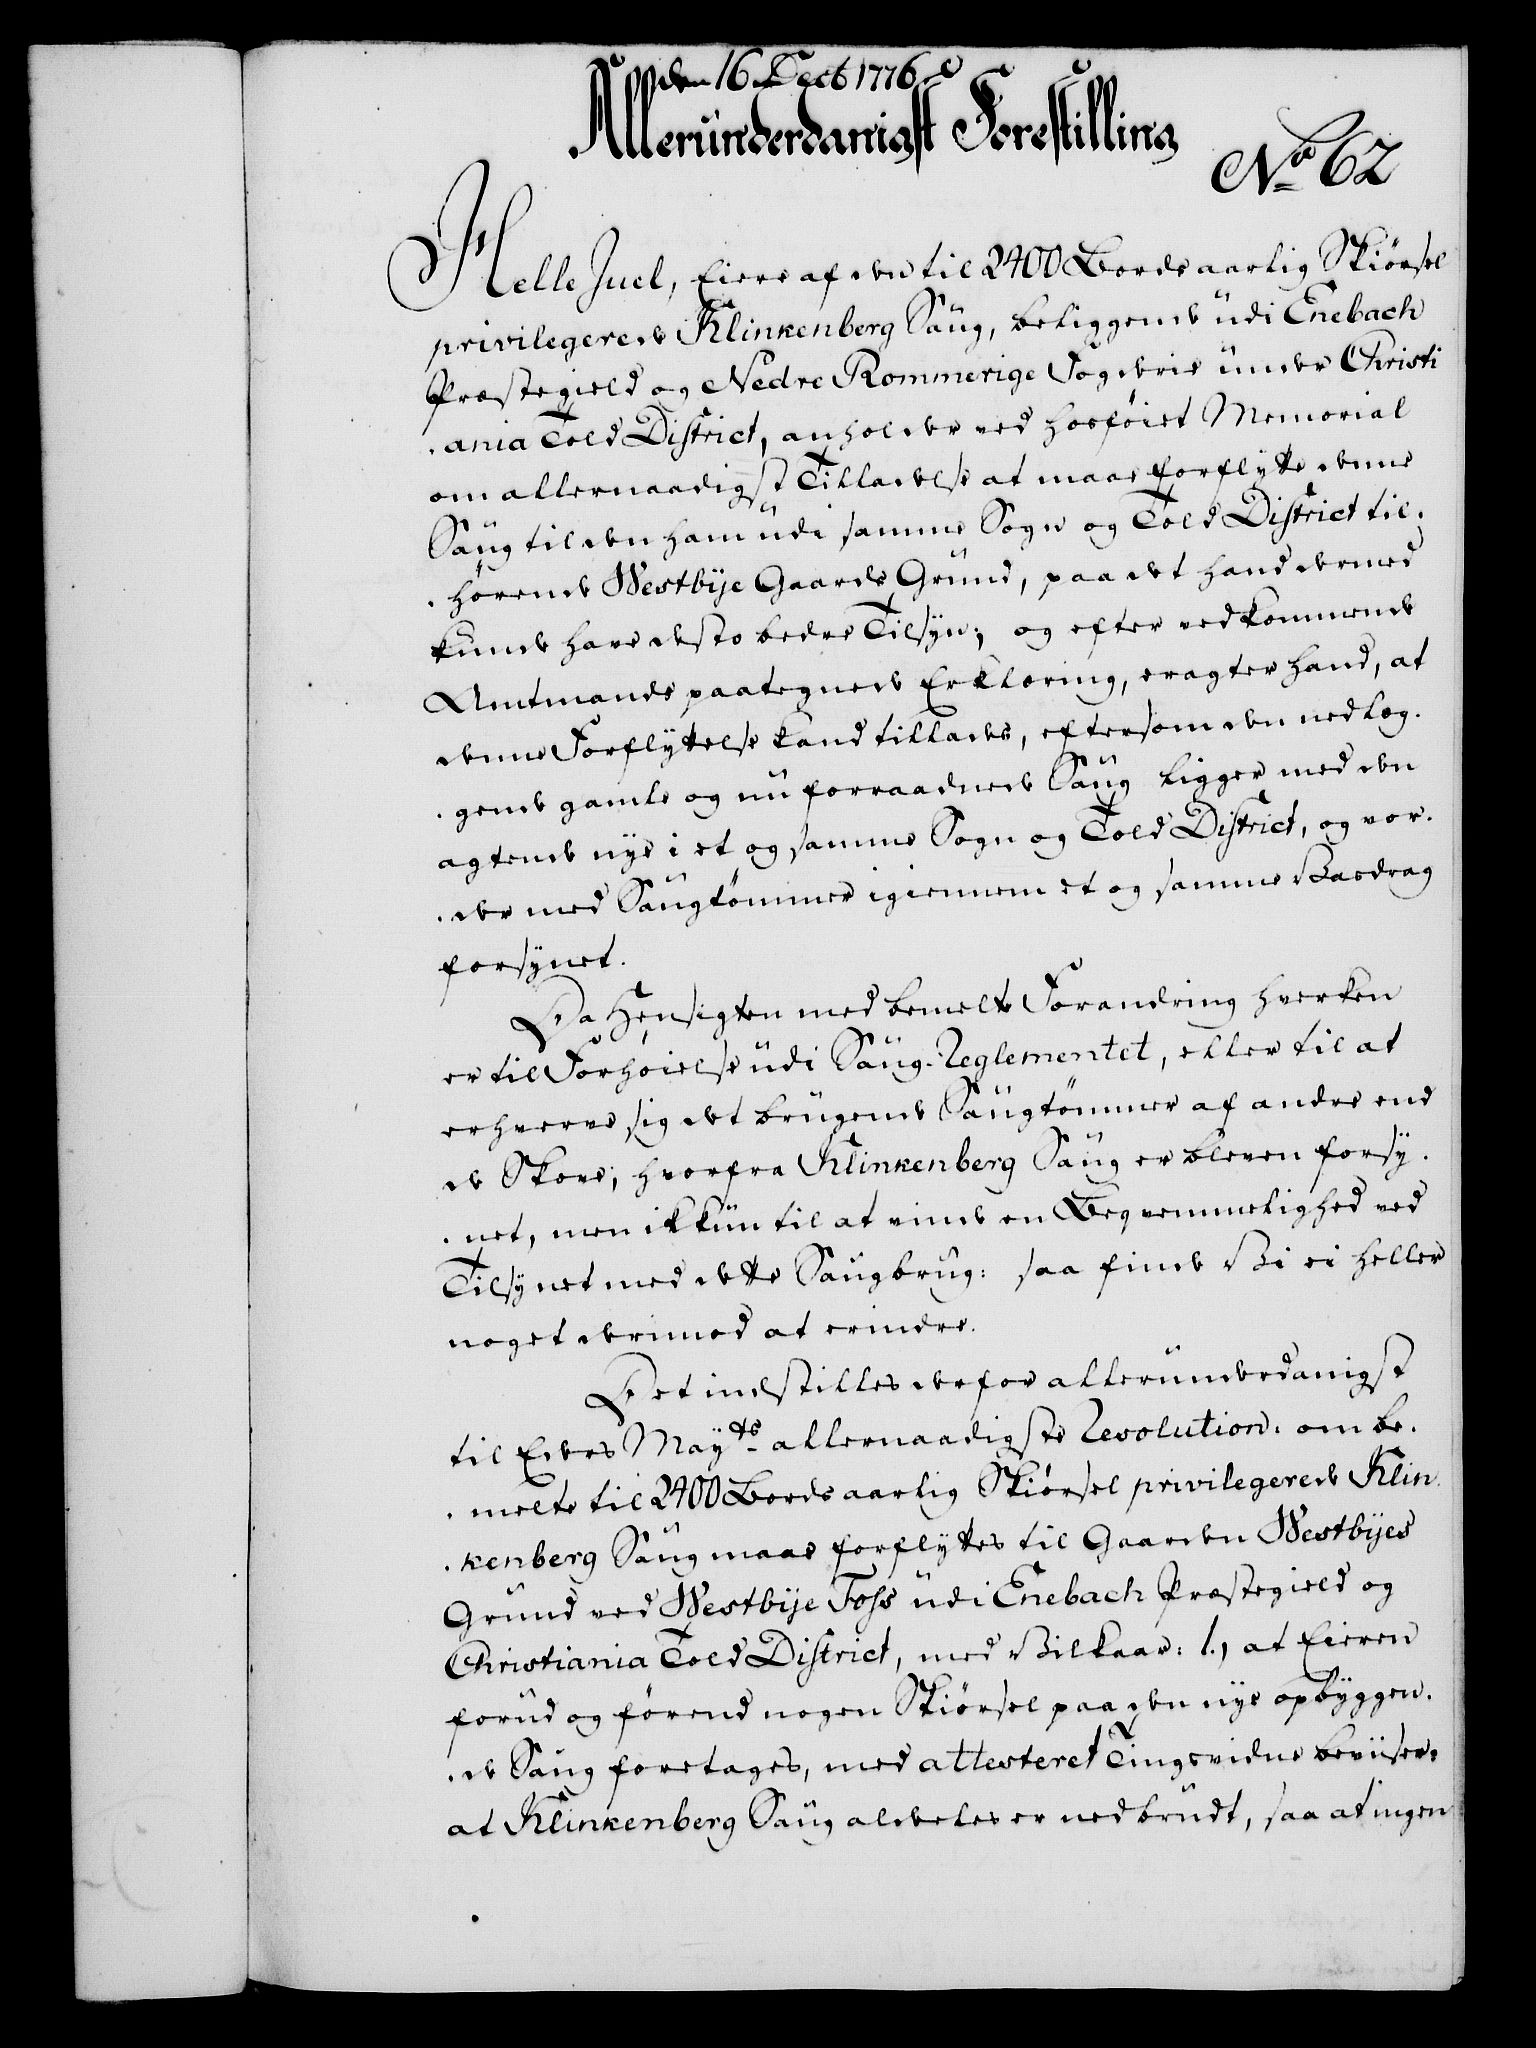 den 16 Decb 1776
Alleründerdanigst Forestilling
No 62
Helle Juel, Eiere af den til 2400 Borde aarlig Skiörsel
privilegerede Klinkenberg Saug, beliggende udi Enebach
Præstegield og Nedre Rommerige Fogderie under Christi
-ania Told District, anholder ved hosföiet Memorial
om allernaadigst Tilladelse at maae forflytte denne
Saug til den ham udi samme Sogn og Told District til-
-hörende Westbÿe Gaards Grund, paa det hand dermed
kunde have desto bedre Tilsÿn; og efter vedkommende
Amtmands paategnede Erklæring, eragter hand, at
denne Forflyttelse kand tillades, eftersom den nedlæg-
-gende gamle og nu forraadnede Saug ligger med den
agtende nye i et og samme Sogn og Told District, og vor-
-der med Saugtömmer igiennem et og samme Vasdrag
forsÿnet.
Da Hensigten med bemelte Forandring hverken
er til Forhöielse udi Saug-Reglementet, eller til at
erhverve sig det brugende Saugtömmer af andre end
de Skove, hvorfra Klinkenberg Saug er bleven forsÿ-
-net, men ikkun til at vinde en Beqvemmelighed ved
Tilsÿnet med dette Saugbrug: saa finde Vi ei heller
noget derimod at erindre.
Det indstilles derfor allerunderdanigst
til Eders Mayts allernaadigste Resolution: om be-
-melte til 2400 Borde aarlig Skiörsel privilegerede Klin-
-kenberg Saug maae forflyttes til Gaarden Westbÿes
Grund ved Westbÿe Foss udi Enebach Præstegield og
Christiania Told District, med Vilkaar: 1., at Eieren
forud og förend nogen Skiörsel paa den nye opbyggen-
-de Saug foretages, med attesteret Tingsvidne beviiser,
at Klinkenberg Saug aldeeles er nedbrudt, saa at ingen